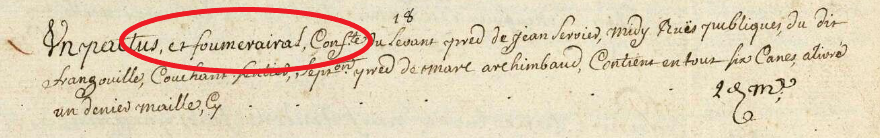 18
Un pactus, et foumerairal, Conf.te du levant pred de jean servier, midy Rües publiques, du dit
frangouille, Couchant sentier, sept.on pred de marc archimbaud, Contient en tout six Canes, alivré
un denier maille, Cy . . . . . 1 ₰ m.e